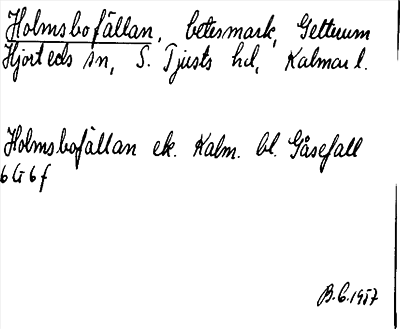 Holmsbofällan, betesmark, Getterum
Hjorteds sn, S. Tjusts hd, Kalmar l.
Holmsbofällan ek. Kalm. bl. Gåsefall
6 G 6 f
B.G. 1957